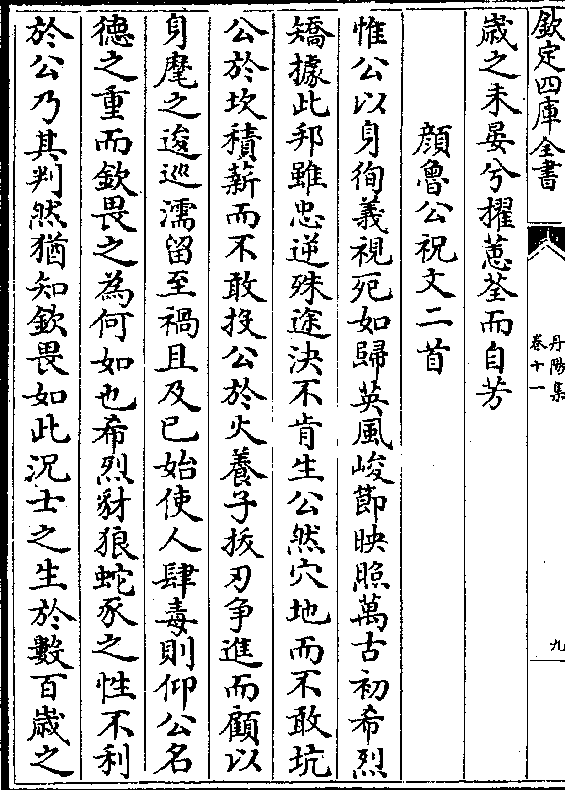 欽定四庫全書
丹陽集
卷十一
九
歲之未晏兮擢蕙荃而自芳
顔魯公祝文二首
惟公以身徇義視死如歸英風峻節映照萬古初希烈
矯據此邦雖忠逆殊途決不肯生公然穴地而不敢坑
公於坎積薪而不敢投公於火養子拔刃爭進而顧以
身麾之逡巡濡留至禍且及已始使人肆毒則仰公名
德之重而欽畏之為何如也希烈豺狼蛇豕之性不利
於公乃其判然猶知欽畏如此況士之生於數百歲之